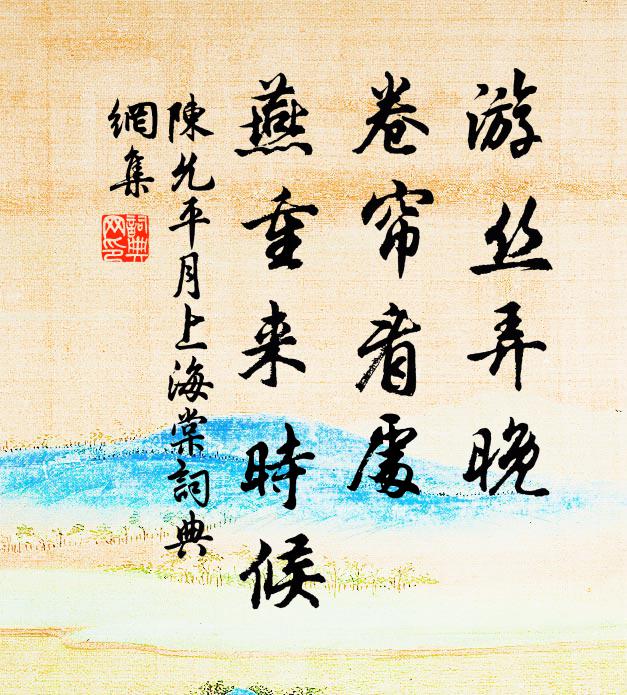 游丝弄晚
卷帘看處
燕重来時候
陳允平月上海棠詞典
網集
詞典
网印